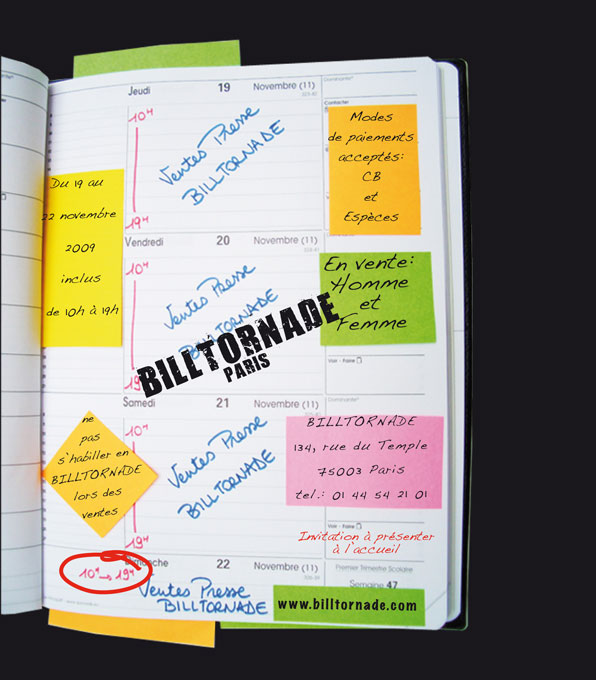 Jeudi 19 Novembre (11)
Dominante
Contacter
10H
Ventes Presse
BILLTORNADE
19H
Modes
de paiements
acceptés:
CB
et
Espèces
Du 19 au
22 novembre
2009
inclus
de 10h à 19h
Vendredi 20 Novembre (11)
10H
Ventes Presse
BILLTORNADE
19H
En vente:
Homme
et
Femme
BILLTORNADE
PARIS
Voir - Faire
Samedi 21 Novembre (11)
Dominante
10H
Ventes Presse
BILLTORNADE
19H
ne
pas
s'habiller en
BILLTORNADE
lors des
ventes
BILLTORNADE
134, rue du Temple
75003 Paris
tel.: 01 44 54 21 01
Voir - Faire
Invitation à présenter
à l'accueil
Dimanche 22 Novembre (11)
Premier Trimestre Scolaire
Semaine 47
10H → 19H
Ventes Presse
BILLTORNADE
www.billtornade.com